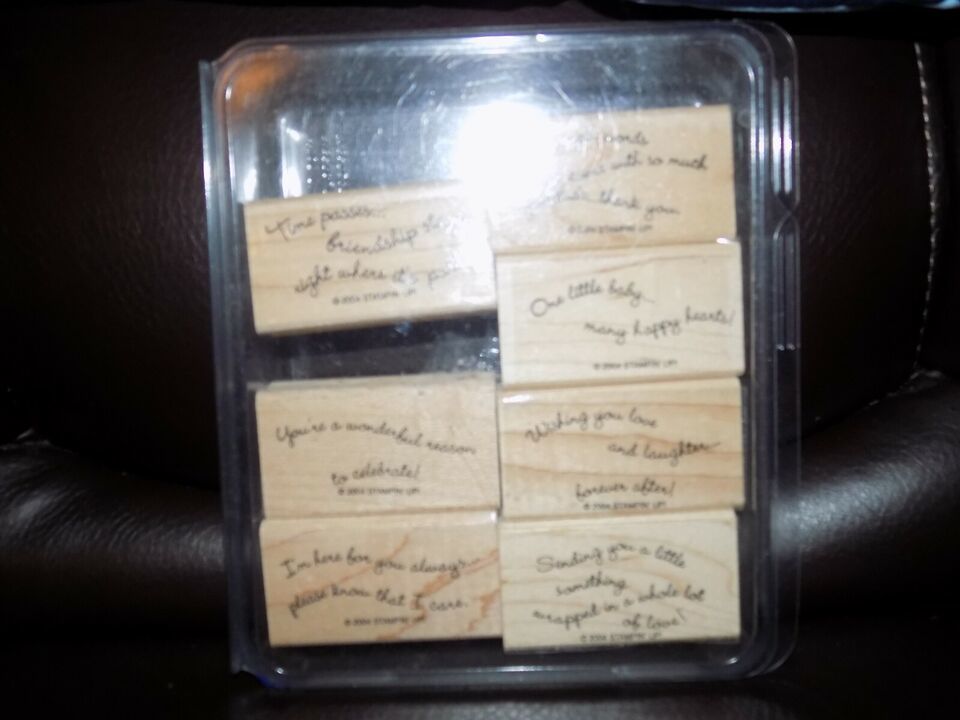 Time passes...
friendship
right where it's
© 2004 STAMPIN' UP!
with so much
thank you
© 2004 STAMPIN' UP!
One little baby...
many happy hearts!
© 2004 STAMPIN' UP!
You're a wonderful reason
to celebrate!
© 2004 STAMPIN' UP!
Wishing you love
and laughter
forever after!
© 2004 STAMPIN' UP!
I'm here for you always...
please know that I care.
© 2004 STAMPIN' UP!
Sending you a little
something
wrapped in a whole lot
of love!
© 2004 STAMPIN' UP!